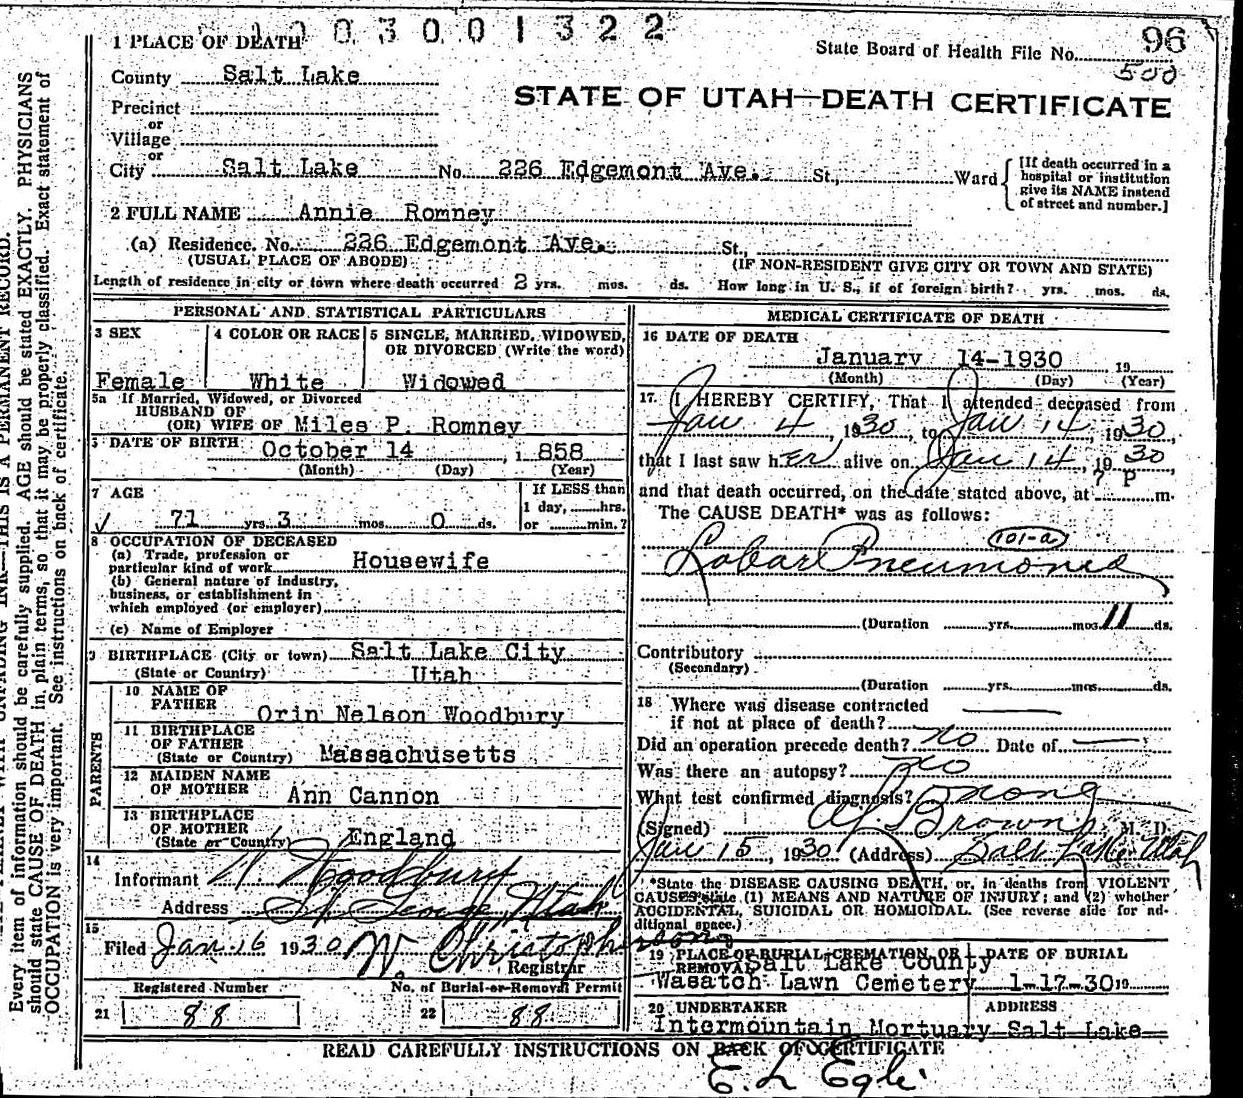 1003001322
1 PLACE OF DEATH
State Board of Health File No. 96
500
County Salt Lake
STATE OF UTAH—DEATH CERTIFICATE
Precinct
or
Village
or
City Salt Lake No. 226 Edgemont Ave. St., Ward
[If death occurred in a
hospital or institution
give its NAME instead
of street and number.]
2 FULL NAME Annie Romney
(a) Residence. No. 226 Edgemont Ave. St.,
(USUAL PLACE OF ABODE) (IF NON-RESIDENT GIVE CITY OR TOWN AND STATE)
Length of residence in city or town where death occurred 2 yrs. mos. ds. How long in U. S., if of foreign birth? yrs. mos. ds.
PERSONAL AND STATISTICAL PARTICULARS
3 SEX
Female
4 COLOR OR RACE
White
5 SINGLE, MARRIED, WIDOWED,
OR DIVORCED (Write the word)
Widowed
5a If Married, Widowed, or Divorced
HUSBAND OF
(OR) WIFE OF Miles P. Romney
DATE OF BIRTH October 14, 1858
(Month) (Day) (Year)
7 AGE
71 yrs. 3 mos. 0 ds.
If LESS than
1 day, hrs.
or min.?
8 OCCUPATION OF DECEASED
(a) Trade, profession or
particular kind of work Housewife
(b) General nature of industry,
business, or establishment in
which employed (or employer)
(c) Name of Employer
9 BIRTHPLACE (City or town) Salt Lake City
(State or Country) Utah
PARENTS
10 NAME OF
FATHER
Orin Nelson Woodbury
11 BIRTHPLACE
OF FATHER
(State or Country) Massachusetts
12 MAIDEN NAME
OF MOTHER Ann Cannon
13 BIRTHPLACE
OF MOTHER
(State or Country) England
14
Informant Woodbury
Address St. George Utah
15
Filed Jan. 16 1930 W. Christopherson
Registrar
Registered Number No. of Burial or Removal Permit
21 88 22 88
MEDICAL CERTIFICATE OF DEATH
16 DATE OF DEATH
January 14-1930 19
(Month) (Day) (Year)
17. I HEREBY CERTIFY, That I attended deceased from
Jan 4, 1930, to Jan 14, 1930,
that I last saw her alive on Jan 14, 1930
and that death occurred, on the date stated above, at 7 P m.
The CAUSE DEATH* was as follows:
101-a
Lobar Pneumonia
(Duration yrs. mos. 11 ds.
Contributory
(Secondary)
(Duration yrs. mos. ds.
18 Where was disease contracted
if not at place of death?
Did an operation precede death? no Date of
Was there an autopsy? no
What test confirmed diagnosis?
(Signed) Brown, M. D.
Jan 15, 1930 (Address) Salt Lake Utah
*State the DISEASE CAUSING DEATH, or, in deaths from VIOLENT
CAUSES state (1) MEANS AND NATURE OF INJURY; and (2) whether
ACCIDENTAL, SUICIDAL OR HOMICIDAL. (See reverse side for ad-
ditional space.)
19 PLACE OF BURIAL, CREMATION, OR
REMOVAL Salt Lake County
Wasatch Lawn Cemetery
DATE OF BURIAL
1-17-30 19
20 UNDERTAKER ADDRESS
Intermountain Mortuary Salt Lake
READ CAREFULLY INSTRUCTIONS ON BACK OF CERTIFICATE
E. L Egli
Every item of information should be carefully supplied. AGE should be stated EXACTLY. PHYSICIANS
should state CAUSE OF DEATH in plain terms, so that it may be properly classified. Exact statement of
OCCUPATION is very important. See instructions on back of certificate.